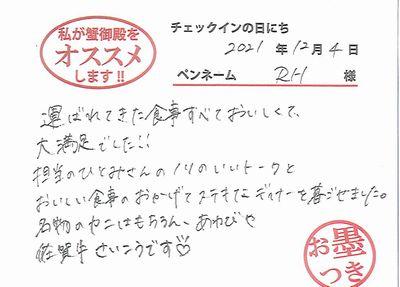 私が蟹御殿を
オススメ
します!!
チェックインの日にち
2021 年 12 月 4 日
ペンネーム RH 様
運ばれてきた食事すべておいしくて、
大満足でした!!
担当のひとみさんのノリのいいトークと
おいしい食事のおかげでステキなディナーを過ごせました。
名物のカニはもちろん、あわびや
佐賀牛さいこうです♡
お墨
つき